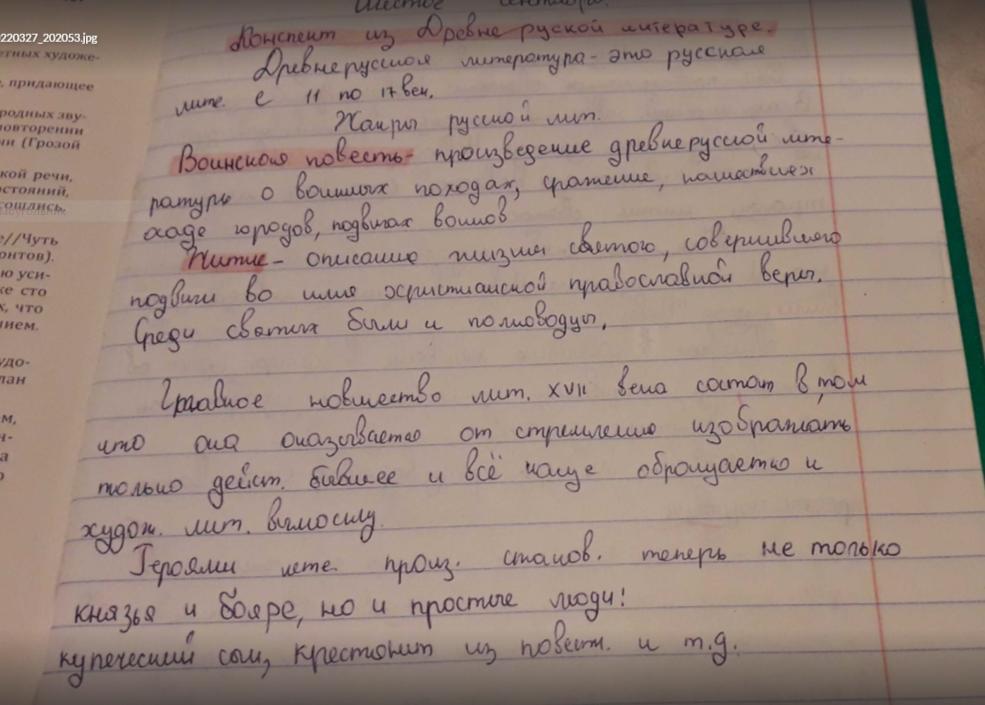 Шестое сентября.
220327_202053.jpg
етных художе-
, придающее
родных зву-
повторении
ни (Грозой
кой речи,
стояний,
сошлись.
е//Чуть
онтов).
ю уси-
ке сто
х, что
нием.
удо-
лан
м,
н-
а
о
Конспект из Древне руской литературе.
Древнерусская литература - это русская
лите. с 11 по 17 век.
Жанры русской лит.
Воинская повесть - произведение древнерусской лите-
ратуры о воинных походах, сражение, нашествиех
осаде городов, подвигах воинов
Житие - описание жизни святого, совершившего
подвиги во имя христианской православной веры.
Среди святых были и полководцы.
Главное новшество лит. XVII века состоит в том
что она отказывается от стремления изображать
только дейст. бывшее и всё чаще обращается к
худож. лит. вымыслу.
Героями лите. произ. станов. теперь не только
князья и бояре, но и простые люди!
купеческий сын, крестьянин из повест. и т.д.